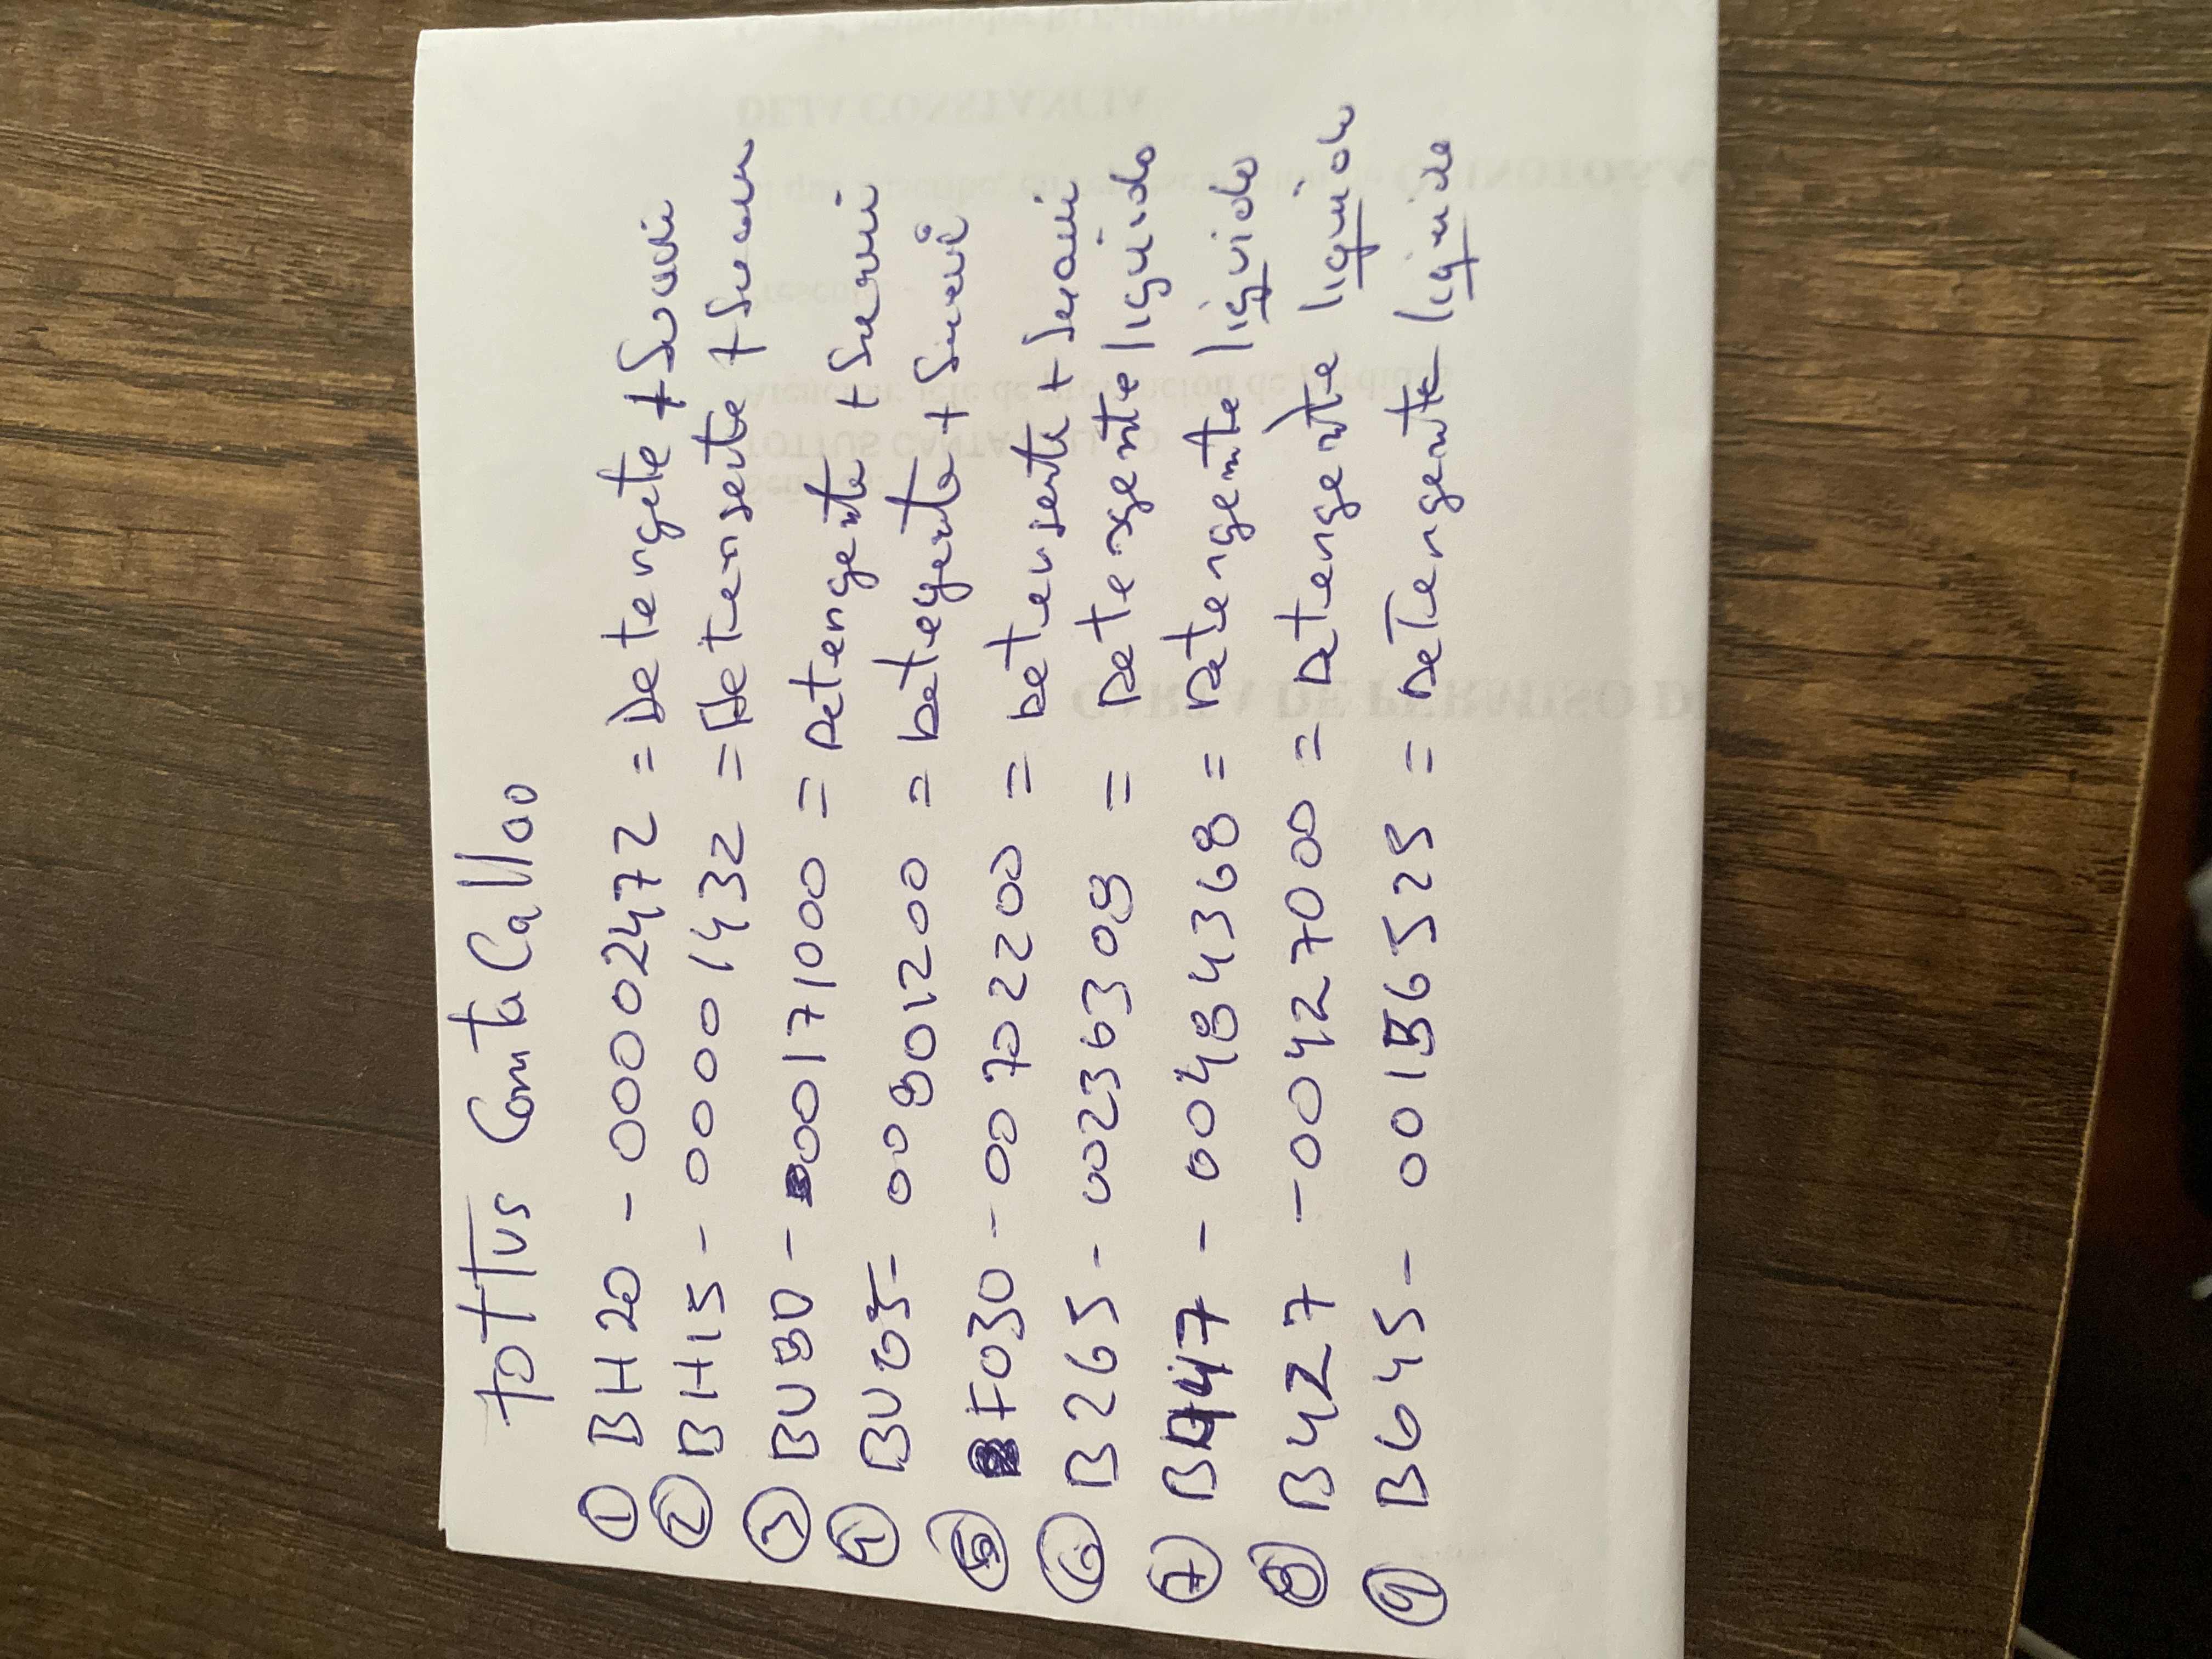 tottus Canta Callao
① BH20 - 00002472 = Detergete + Suavi
② BH15 - 00001432 = Detergente + Suavi
③ BU80 - 000171000 = Detergente + Suavi
④ BU05 - 00801200 = Detegente + Suavi
⑤ F030 - 00702200 = Detergente + Suavi
⑥ B265 - 00236308 = Detergente liquido
⑦ B447 - 00484368 = Detergente liquido
⑧ B427 - 00427000 = Detergente liquido
⑨ B645 - 00156525 = Detergente liquido